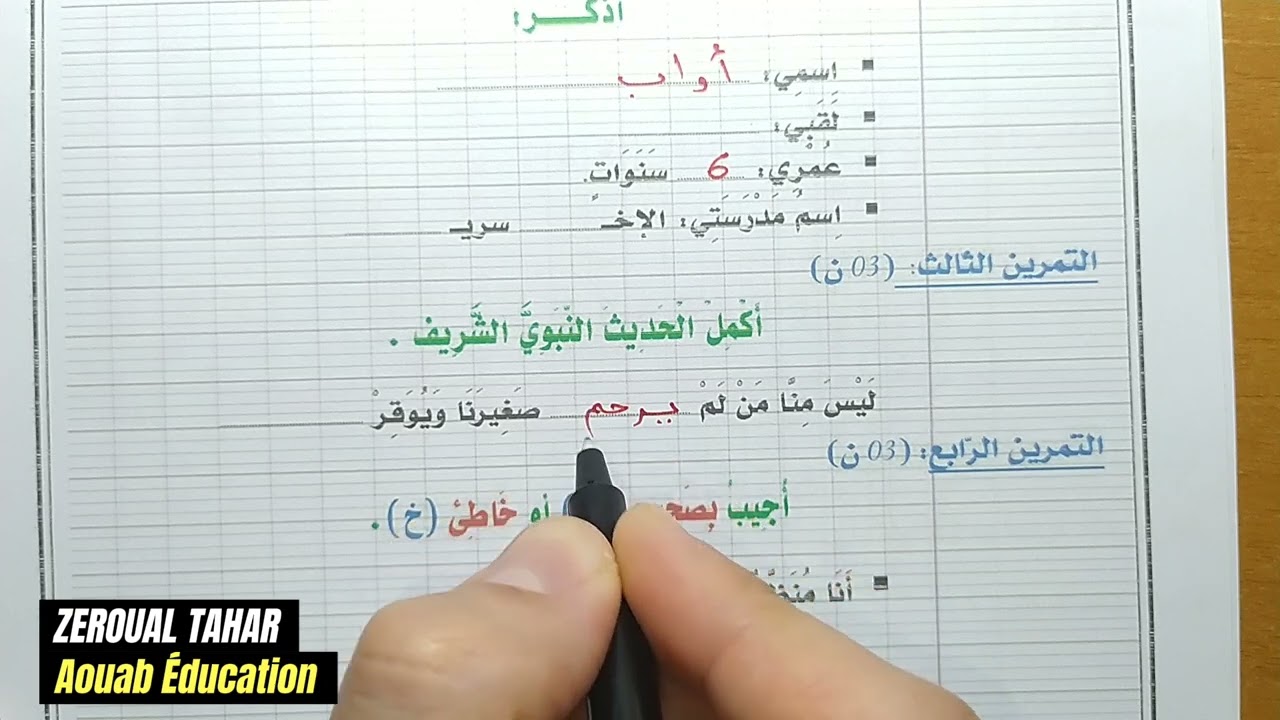 اذكـــــر:
▪ اِسمِي: أواب
▪ لَقَبِي:
▪ عُمْرِي: 6 سَنَوَاتٍ.
▪ اِسمُ مَدْرَسَتِي: الإخـ سريـ
التمرين الثالث: (03 ن)
أَكْمِلْ الْحَدِيثَ النَّبَوِيَّ الشَّرِيف .
لَيْسَ مِنَّا مَنْ لَمْ يرحم صَغِيرَنَا وَيُوَقِرْ
التمرين الرّابع: (03 ن)
أُجِيبُ أو خَاطِئ (خ) .
▪ أَنَا
ZEROUAL TAHAR
Aouab Éducation